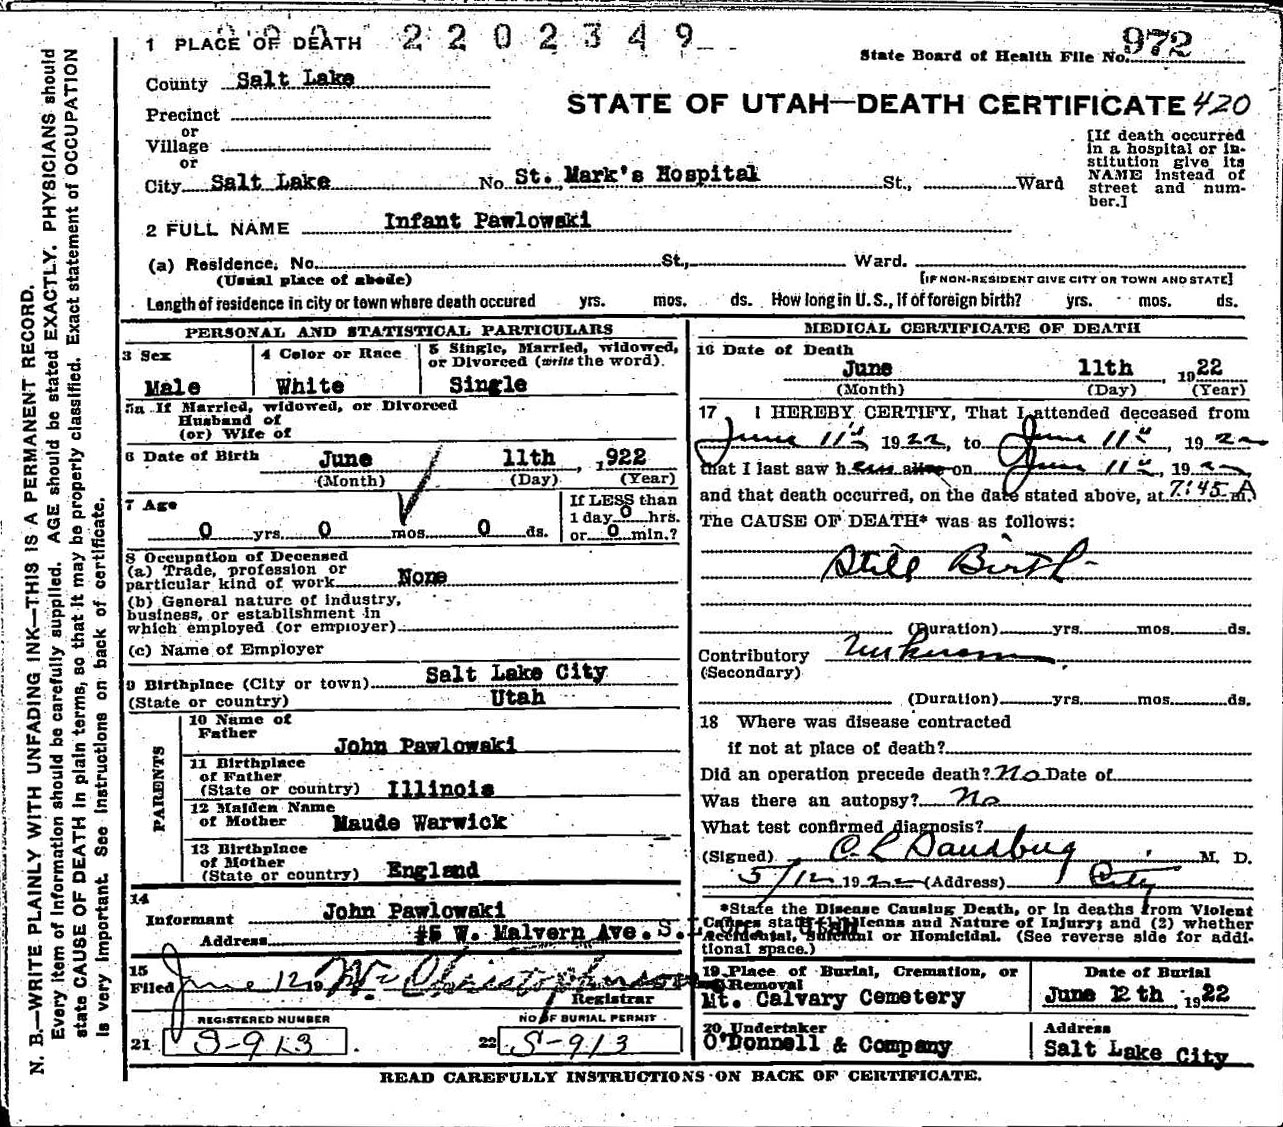 1 PLACE OF DEATH 2202349
State Board of Health File No. 972
County Salt Lake
STATE OF UTAH—DEATH CERTIFICATE 420
Precinct
or
Village
or
City Salt Lake No St. Mark's Hospital St., Ward
[If death occurred
in a hospital or in-
stitution give its
NAME instead of
street and num-
ber.]
2 FULL NAME Infant Pawlowski
(a) Residence, No. St., Ward.
(Usual place of abode) [IF NON-RESIDENT GIVE CITY OR TOWN AND STATE]
Length of residence in city or town where death occured yrs. mos. ds. How long in U.S., if of foreign birth? yrs. mos. ds.
PERSONAL AND STATISTICAL PARTICULARS
3 Sex
Male
4 Color or Race
White
5 Single, Married, widowed,
or Divorced (write the word).
Single
5a If Married, widowed, or Divorced
Husband of
(or) Wife of
6 Date of Birth June 11th, 1922
(Month) (Day) (Year)
7 Age
0 yrs. 0 mos. 0 ds.
If LESS than
1 day 0 hrs.
or 0 min.?
8 Occupation of Deceased
(a) Trade, profession or
particular kind of work None
(b) General nature of industry,
business, or establishment in
which employed (or employer)
(c) Name of Employer
9 Birthplace (City or town) Salt Lake City
(State or country) Utah
PARENTS
10 Name of
Father
John Pawlowski
11 Birthplace
of Father
(State or country) Illinois
12 Maiden Name
of Mother Maude Warwick
13 Birthplace
of Mother
(State or country) England
14
Informant John Pawlowski
Address #5 W. Malvern Ave. S.L. Utah
15
Filed June 12 19 Wm Christopherson
Registrar
REGISTERED NUMBER
21 S-913
NO OF BURIAL PERMIT
22 S-913
MEDICAL CERTIFICATE OF DEATH
16 Date of Death
June 11th, 1922
(Month) (Day) (Year)
17 I HEREBY CERTIFY, That I attended deceased from
June 11th 1922, to June 11th, 1922
that I last saw h alive on June 11th, 1922
and that death occurred, on the date stated above, at 7:45 A m.
The CAUSE OF DEATH* was as follows:
Still Birth
(Duration) yrs. mos. ds.
Contributory Unknown
(Secondary)
(Duration) yrs. mos. ds.
18 Where was disease contracted
if not at place of death?
Did an operation precede death? No Date of
Was there an autopsy? No
What test confirmed diagnosis?
(Signed) C. L. Sandberg M. D.
5/12 1922 (Address) City
*State the Disease Causing Death, or in deaths from Violent
Causes state (1) Means and Nature of Injury; and (2) whether
Accidental, Suicidal or Homicidal. (See reverse side for addi-
tional space.)
19 Place of Burial, Cremation, or
Removal
Mt. Calvary Cemetery
Date of Burial
June 12th 1922
20 Undertaker
O'Donnell & Company
Address
Salt Lake City
READ CAREFULLY INSTRUCTIONS ON BACK OF CERTIFICATE.
N. B.—WRITE PLAINLY WITH UNFADING INK—THIS IS A PERMANENT RECORD.
Every item of information should be carefully supplied. AGE should be stated EXACTLY. PHYSICIANS should
state CAUSE OF DEATH in plain terms, so that it may be properly classified. Exact statement of OCCUPATION
is very important. See instructions on back of certificate.